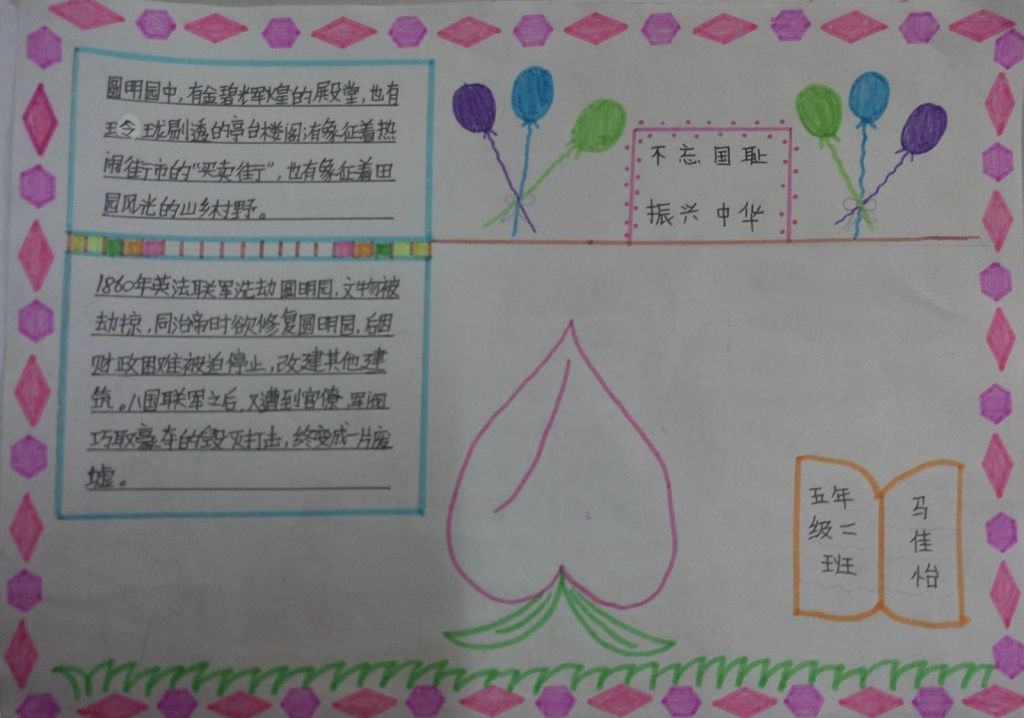 圆明园中,有金碧光辉煌的殿堂,也有
玲珑剔透的亭台楼阁;有象征着热
闹街市的“买卖街”,也有象征着田
园风光的山乡村野。
1860年英法联军洗劫圆明园,文物被
劫掠,同治帝时欲修复圆明园,后因
财政困难被迫停止,改建其他建
筑。八国联军之后,又遭到官僚,军阀
巧取豪夺的毁灭打击,终变成一片废
墟。
不忘国耻
振兴中华
五年
级二
班
马
佳
怡